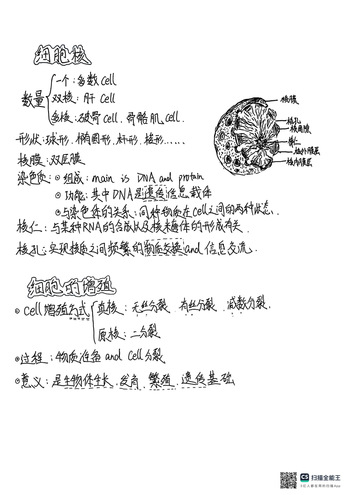 细胞核
数量
一个:多数 cell
双核:肝 cell
多核:破骨 cell、骨骼肌 cell.
形状:球形、椭圆形、杆形、梭形……
核膜:双层膜
染色质:①组成:main is DNA and protein
②功能:其中DNA是遗传信息载体
③与染色体的关系:同种物质在cell之间的两种状态.
核仁:与某种RNA的合成以及核糖体的形成有关.
核孔:实现核质之间频繁的物质交换and信息交流.
核膜
核孔
核仁
核外膜层
核内膜层
细胞的增殖
①cell增殖方式
真核:无丝分裂、有丝分裂、减数分裂.
原核:二分裂
②过程:物质准备 and cell分裂
③意义:是生物体生长、发育、繁殖、遗传基础
扫描全能王
3亿人都在用的扫描App